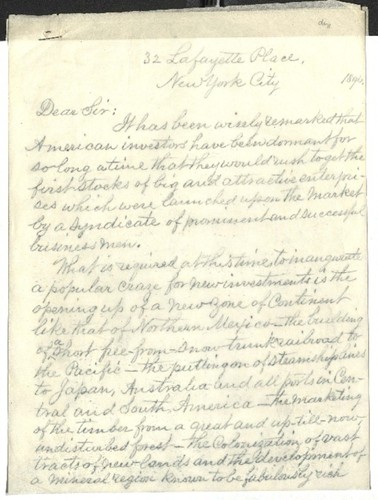 32 Lafayette Place,
New York City
Dear Sir:
It has been wisely remarked that
American investors have been dormant for
so long a time that they would rush to get the
first stocks of big and attractive enterpri-
ses which were launched upon the market
by a syndicate of prominent and successful
business men.
What is required at this time to inaugurate
a popular craze for new investments is the
opening up of a new zone of Continent
like that of Northern Mexico - the building
of a short free-from-snow trunk railroad to
the Pacific - the putting on of steamship lines
to Japan, Australia and all ports in Cen-
tral and South America - the marketing
of the timber from a great and up-till-now
undisturbed forest - the Colonization of vast
tracts of new lands and the development of
a mineral region known to be fabulously rich